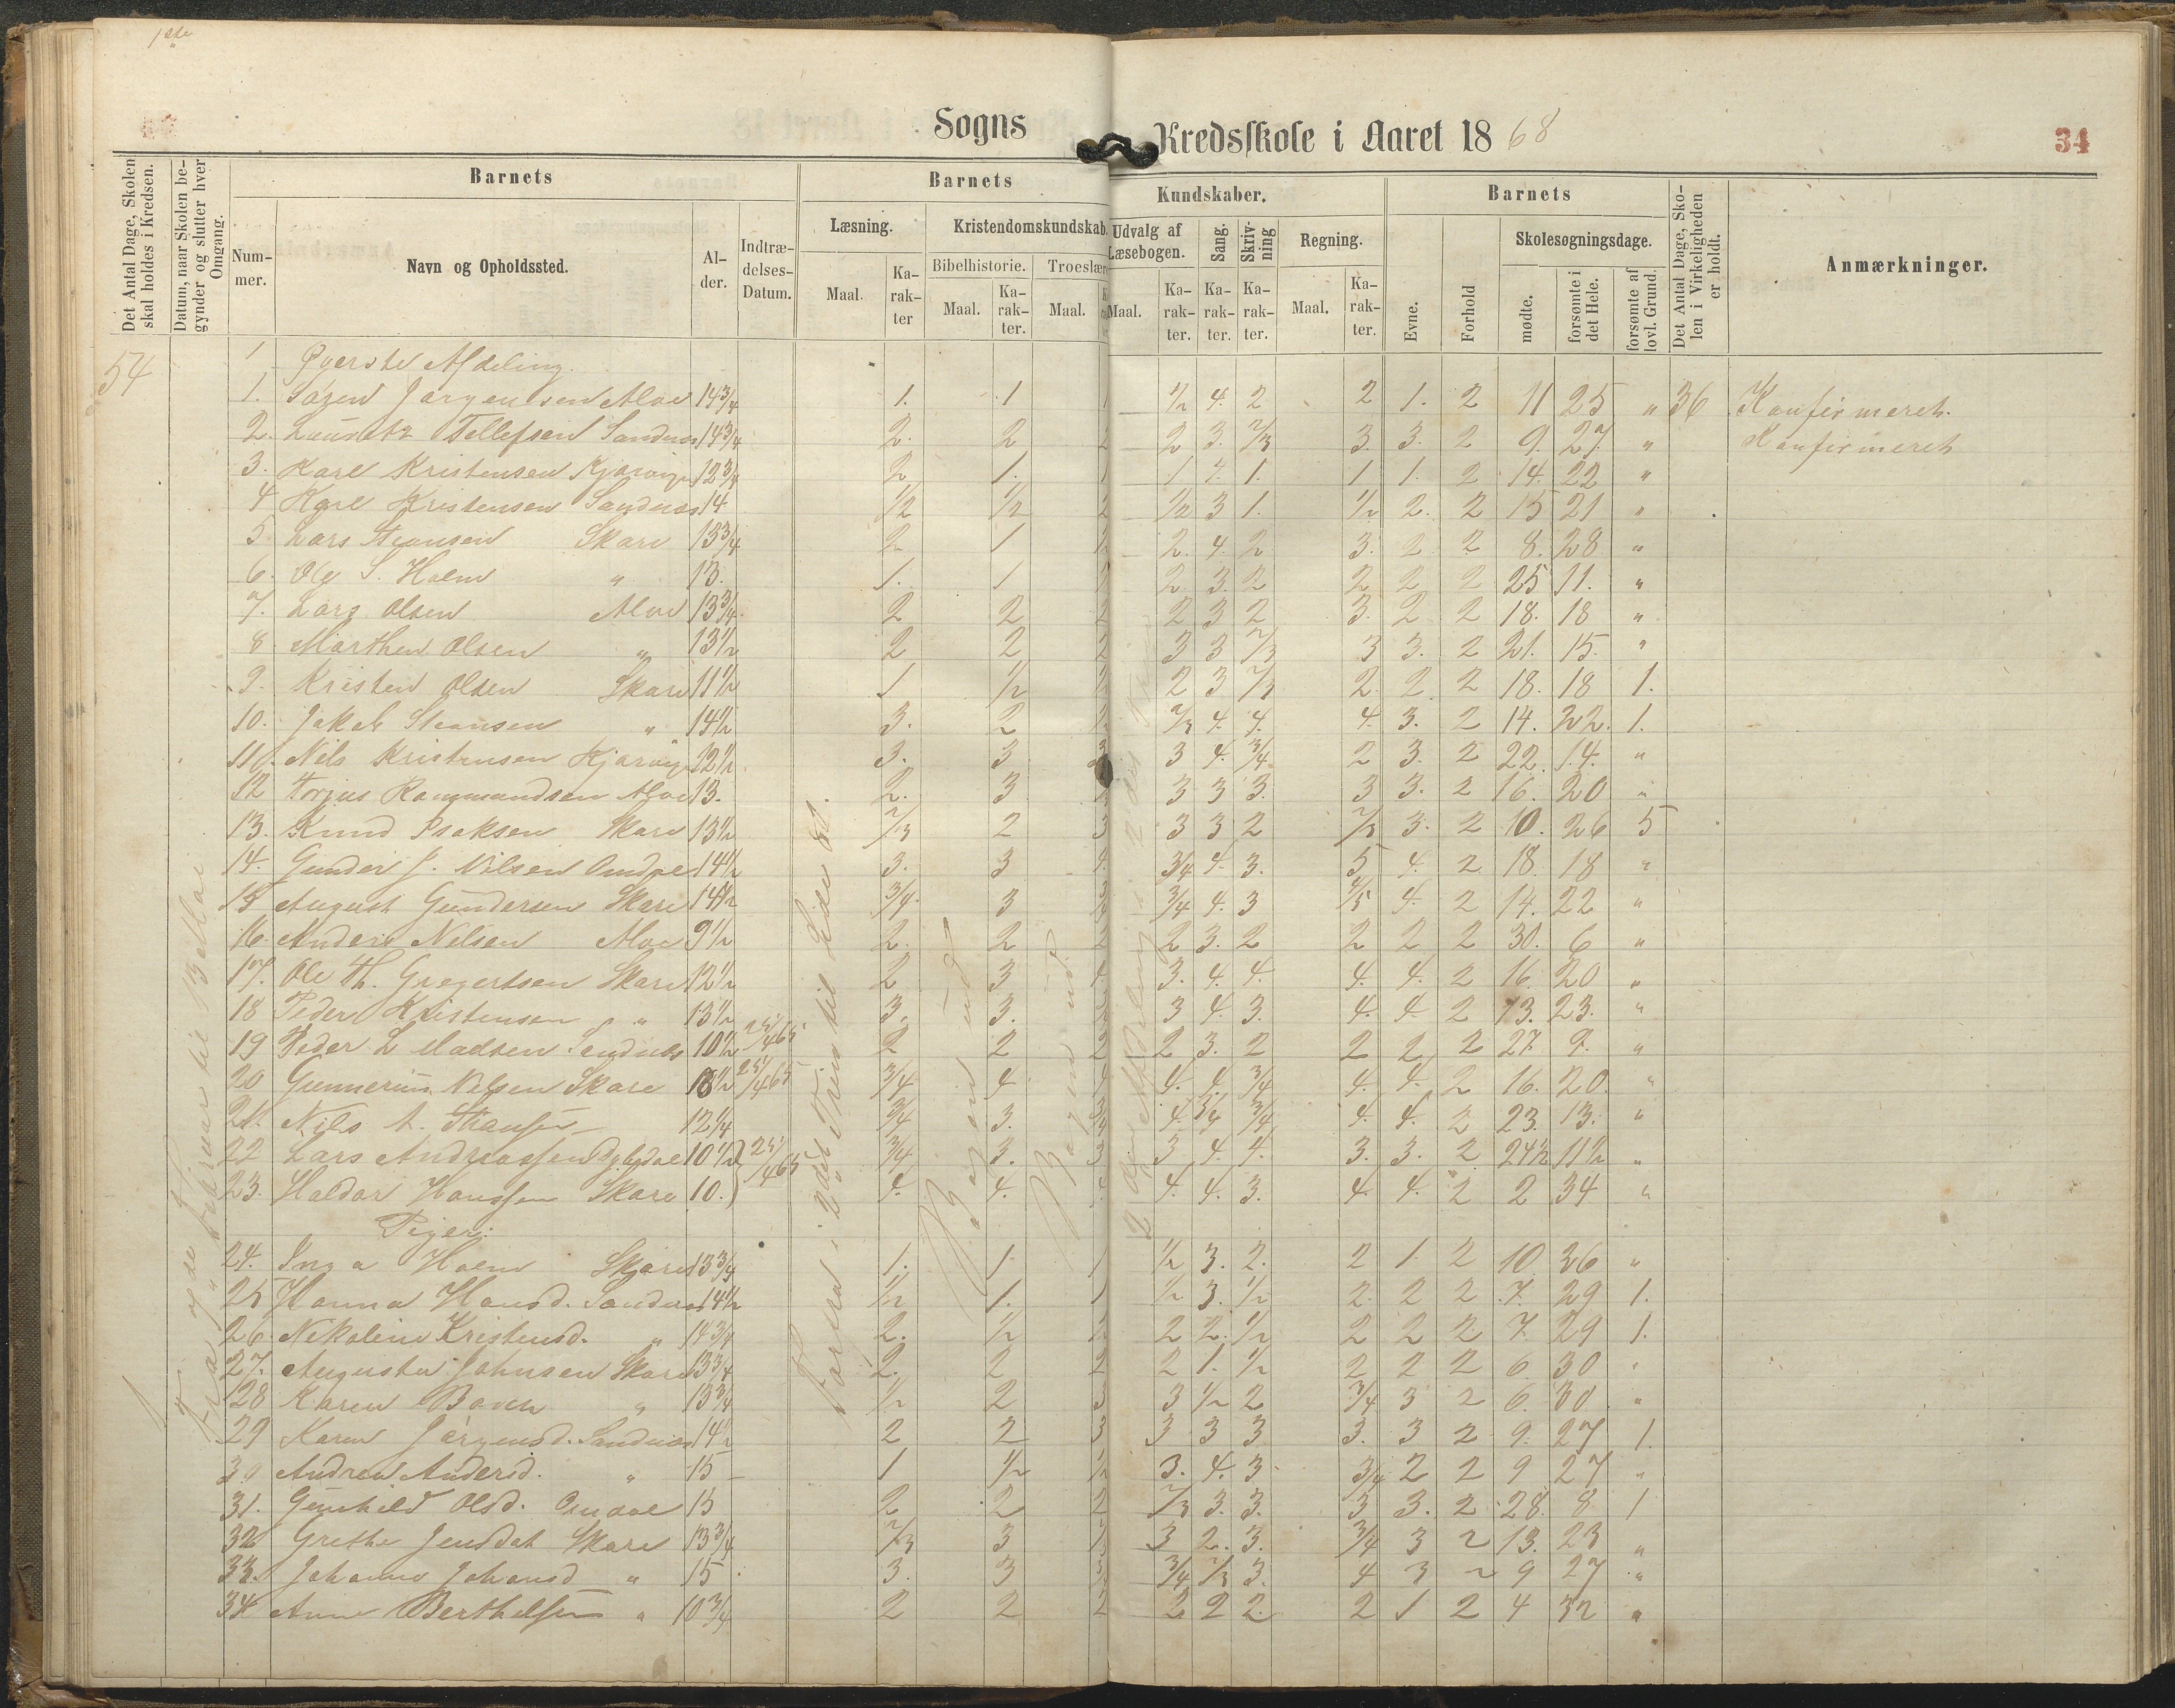 1ste
Sogns Kredsskole i Aaret 1868
34
Det Antal Dage, Skolen skal holdes i Kredsen.
Datum, naar Skolen begynder og slutter hver Omgang.
Barnets
Nummer.
Navn og Opholdssted.
Alder.
Indtrædelses-Datum.
Barnets Kundskaber.
Læsning. Maal. Karakter
Kristendomskundskab.
Bibelhistorie. Maal. Karakter.
Troeslære Maal.
Udvalg af Læsebogen. Maal. Karakter.
Sang. Karakter.
Skrivning Karakter.
Regning. Maal. Karakter.
Barnets
Evne.
Forhold
Skolesøgningsdage.
mødte.
forsømte i det Hele.
forsømte af lovl. Grund.
Det Antal Dage, Skolen i Virkeligheden er holdt.
Anmærkninger.
54
Øverste Afdeling.
1. Søren Jørgensen Aloe 14 3/4 1. 1 1 1/2 4. 2 2 1. 2 11 25 " 36 Konfirmeret.
2. Lauritz Tellefsen Sandnes 14 3/4 2. 2 2 2 3. 2/3 3. 3. 2 9. 27. " Konfirmeret
3. Karl Kristensen 12 3/4 2 1. 1 1 4. 1. 1 1. 2 14. 22 "
4 Karl Kristensen Sandnes 14 1/2 1/2 2 1/2 3 1. 1/2 2. 2 15 21 "
5 Lars Skare 13 3/4 2 1 2 2. 4. 2 3. 2 2 8. 28 "
6. Ole S. Holm " 13. 1. 1 2. 3. 2 2 2 2 25 11. "
7. Lars Olsen Aloe 13 3/4 2 2 2 2 3 2 3. 2 2 18. 18 "
8 Marthen Olsen " 13 1/2 2 2 2 3 3 2/3 3 3. 2 21. 15. "
9. Kristen Olsen Skare 11 1/2 1 1/2 2 3 2/3 2. 2. 2 18. 18 1.
10. Jakob " 14 1/2 3. 2 2/3 4. 4. 4. 3. 2 14. 22. 1.
11. Nils Kristensen 12 1/2 3. 3 3 3 4. 3/4 2 3. 2 22. 14. "
12 Torjus Rommundsen Aloe 13. 2. 3 3 3 3. 3 3. 2 16. 20 "
13. Knud Isaksen Skare 13 1/2 2/3 2 3 3 3 2 2/3 3. 2 10. 26 5
14. Gunder J. Nilsen 14 1/2 3. 3 4. 3/4 4. 3. 5 4. 2 18. 18 "
15 August Gundersen Skare 14 1/2 3/4. 3 3/4 4. 3 4/5 4. 2 14. 22 "
16. Anders Nilsen Aloe 9 1/2 2. 2 2 2 3. 2 2 2 2 30. 6 "
17. Ole Th. Gregertsen Skare 12 1/2 2 3 4 3. 4. 4. 4. 4. 2 16. 20 "
18 Peder Kristensen " 13 1/2 3. 3. 3 4. 3. 4. 4. 2 13. 23. "
19 Peder L Madsen Sandnes 10 1/2 25/4 65 2 2 2 2 3. 2 2 2 2 27. 9. "
20 Gunnerius Nilsen Skare 25/4 65 3/4 4 4. 4. 3/4 4. 4. 2 16. 20. "
21. Nils A. 12 1/4 3/4 3. 4. 3/4 3/4 4. 4. 2 23. 13. "
22 Lars Andreassen 10 1/2 25/4 65 3/4 3. 3 3 4. 4. 3. 3. 2 24 1/2 11 1/2 "
23. Haldor Hanssen Skare 10. 4. 4. 4. 4. 3. 4. 4. 2 2 34 "
Piger:
24. Inga Holm Skare 13 3/4 1. 1. 1 1/2 3. 2. 2 1 2 10. 26 "
25 Hanna Hansd. Sandnes 14 1/2 1/2 1. 1 1/2 3. 1/2 2. 2 2 7. 29 1.
26. Nikoline Kristensd. " 14 3/4 2. 1/2 2 2. 1/2 2 2 2 7. 29 1.
27. Augusta Johnsen Skare 13 3/4 2. 2 2 2 1. 1/2 2 2 2 6 30 "
28 Karen " 13 3/4 1/2 2 3 3 1/2 2 3/4 3 2 6. 30 "
29 Karen Jørgensd. Sandnes 14 1/2 2 2 3 3 3 3 3. 3 2 9. 27 1.
30 Andrea Andersd. " 15 1 1/2 1/2 3. 4. 3 3/4 2 2 9 27 "
31. Gunhild Olsd. 15 2 2 2 2/3 3. 3. 3 3. 2 28. 8 1
32 Grethe Jensdat Skare 13 3/4 2/3 3 3 2. 3. 3/4 3 2 13. 23 "
33. Johanne Johansd " 15 3. 3 3/4 2/3 3. 4 3 2 9 27 "
34 Anne Berthelsen " 10 3/4 2 2 2 2 2 2 2 1 2 4 32 "
Bogen ud
Bogen ud.